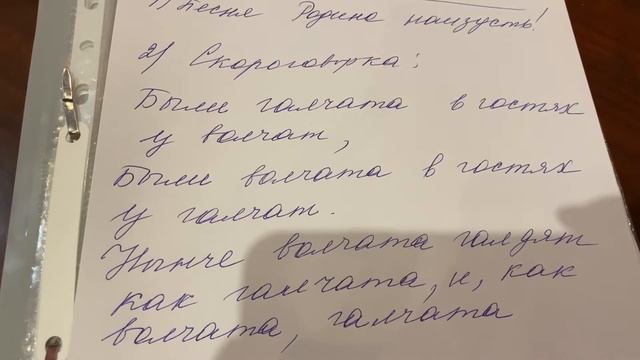 1) Песня Родина наизусть!
2) Скороговорка:
Были галчата в гостях
у волчат,
Были волчата в гостях
у галчат.
Нынче волчата галдят
как галчата, и, как
волчата, галчата